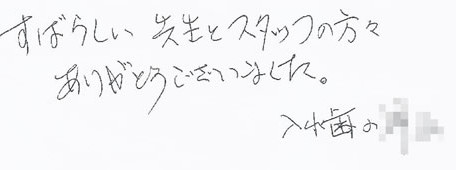 すばらしい 先生とスタッフの方々
ありがとうございました。
入れ歯の